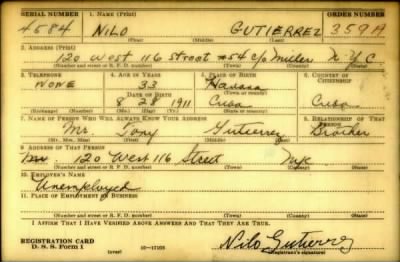 SERIAL NUMBER 1. NAME (Print) ORDER NUMBER
4584 NILO GUTIERREZ 3591A
(First) (Middle) (Last)
2. ADDRESS (Print)
120 West 116 Street #54 c/o Miller N.Y.C.
(Number and street or R. F. D. number) (Town) (County) (State)
3. TELEPHONE 4. AGE IN YEARS 5. PLACE OF BIRTH 6. COUNTRY OF CITIZENSHIP
NONE 33 Havana
DATE OF BIRTH (Town or county)
8 28 1911 Cuba Cuba
(Exchange) (Number) (Mo.) (Day) (Yr.) (State or country)
7. NAME OF PERSON WHO WILL ALWAYS KNOW YOUR ADDRESS 8. RELATIONSHIP OF THAT PERSON
Mr. Tony Gutierrez Brother
(Mr., Mrs., Miss) (First) (Middle) (Last)
9. ADDRESS OF THAT PERSON
120 West 116 Street NYC
(Number and street or R. F. D. number) (Town) (County) (State)
10. EMPLOYER'S NAME
Unemployed
11. PLACE OF EMPLOYMENT OR BUSINESS
(Number and street or R. F. D. number) (Town) (County) (State)
I AFFIRM THAT I HAVE VERIFIED ABOVE ANSWERS AND THAT THEY ARE TRUE.
REGISTRATION CARD
D. S. S. Form 1 (over) 16—17105 Nilo Gutierrez
(Registrant's signature)